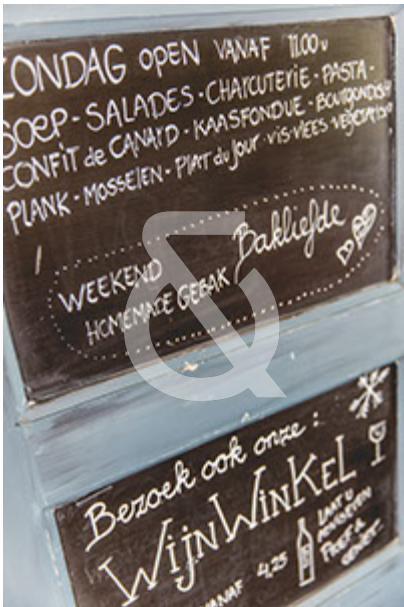 ZONDAG OPEN VANAF 11.00u
SOEP - SALADES - CHARCUTERIE - PASTA -
CONFIT de CANARD - KAASFONDUE - BOURGONDISCHE
PLANK - MOSSELEN - PLAT du JOUR - VIS - VLEES - VEGETARISCH
WEEKEND Bakliefde
HOMEMADE GEBAK
Bezoek ook onze :
WIJNWINKEL
VANAF 4,25
LAAT U
ADVISEREN
PROEF &
GENIET